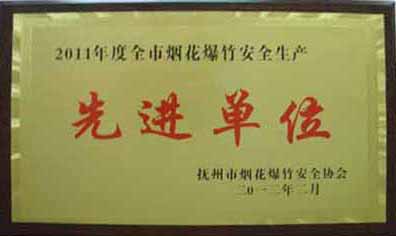 2011年度全市烟花爆竹安全生产
先进单位
抚州市烟花爆竹安全协会
二〇一二年二月